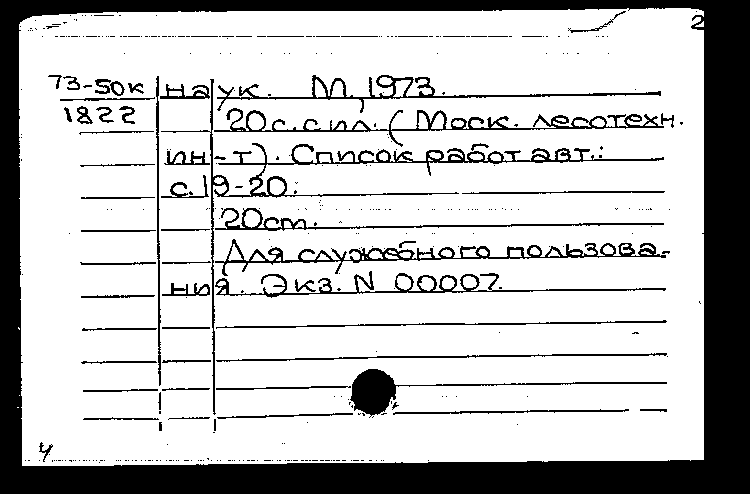 2
73-50к наук. М, 1973.
1822 20с. с ил. (Моск. лесотехн.
ин-т). Список работ авт.:
с. 19-20.
20ст.
Для служебного пользова-
ния. Экз. N 00007.
4